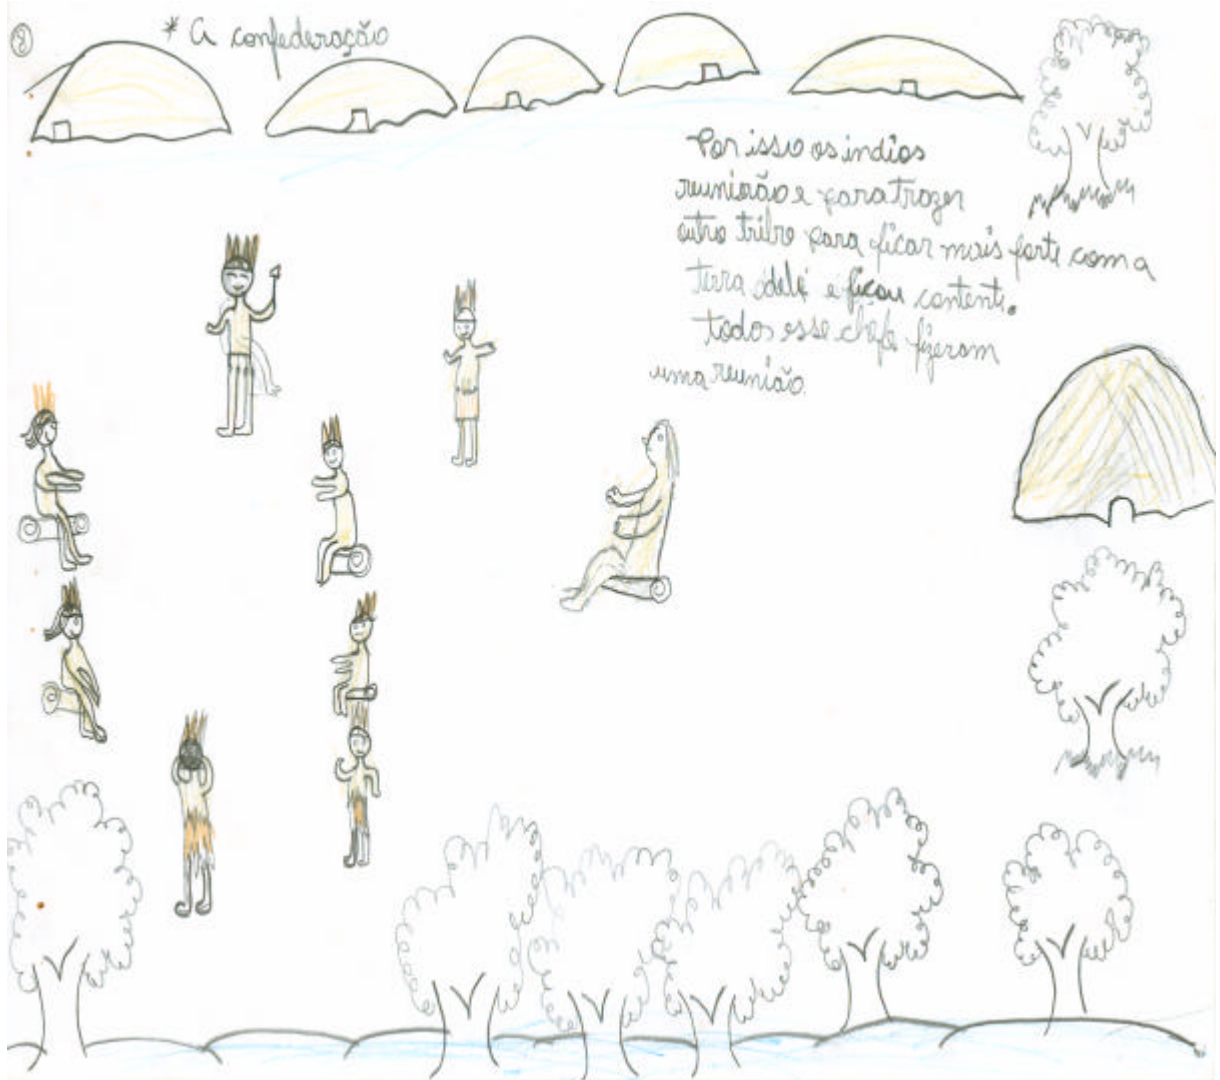 8
* A confederação
Por isso os indios
reunirão e para trazer
outro tribo para ficar mais forte com a
terra dele e ficou contente.
todos esse chefe fizeram
uma reunião.